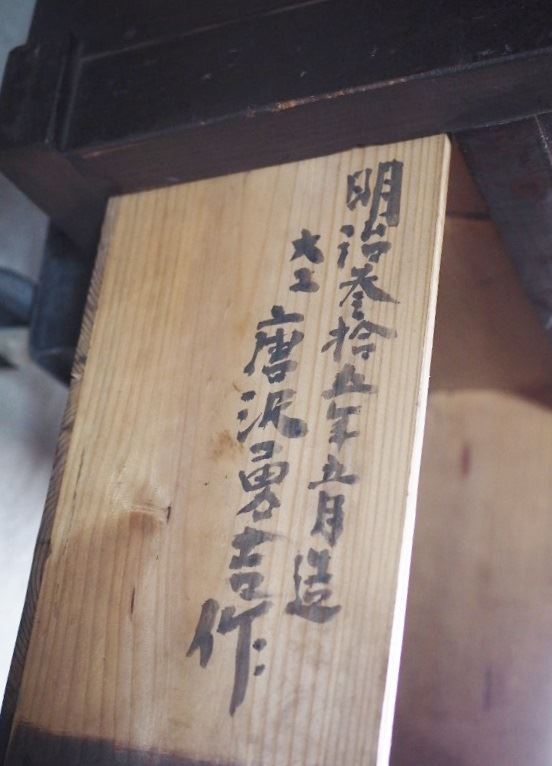 明治叁拾五年五月造
大工 唐沢勇吉作